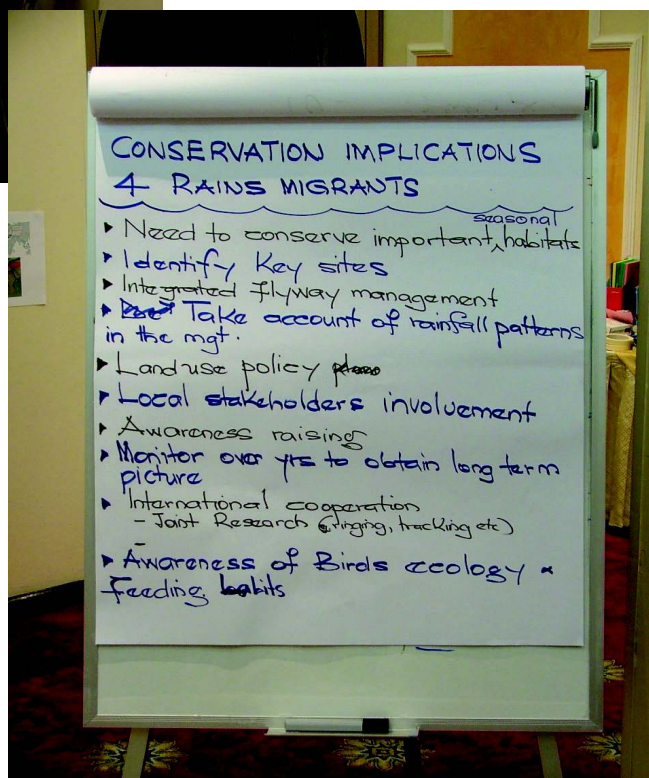 CONSERVATION IMPLICATIONS
4 RAINS MIGRANTS
▸ Need to conserve important seasonal habitats
▸ Identify Key sites
▸ Integrated flyway management
▸ Take account of rainfall patterns
in the mgt.
▸ Land use policy
▸ Local stakeholders involvement
▸ Awareness raising
▸ Monitor over yrs to obtain long term
picture
▸ International cooperation
- Joint Research (ringing, tracking etc)
-
▸ Awareness of Birds ecology &
feeding habits